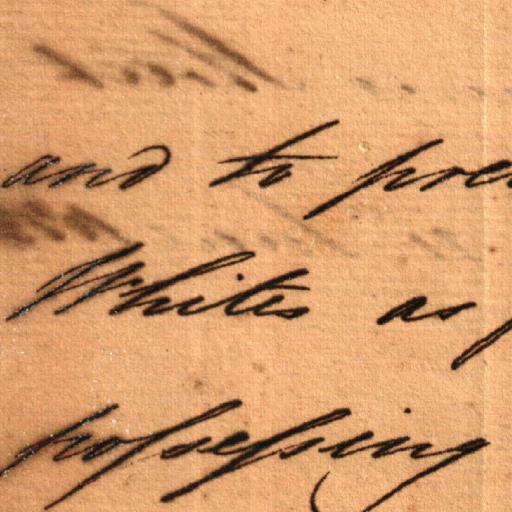 and to pre
Whites as p
possessing